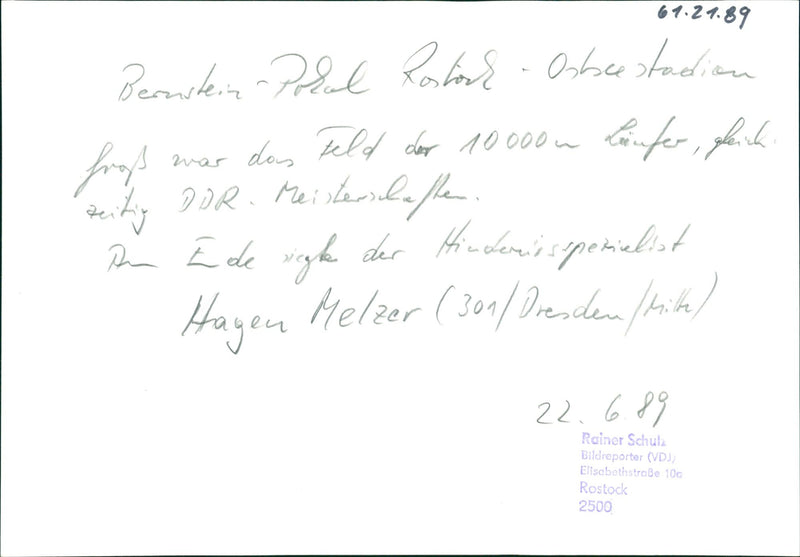 61.21.89
Bernstein-Pokal Rostock - Ostseestadion
Groß war das Feld der 10000m Läufer, gleich-
zeitig DDR-Meisterschaften.
Am Ende siegte der Hindernisspezialist
Hagen Melzer (301/Dresden/Mitte)
22.6.89
Rainer Schulz
Bildreporter (VDJ)
Elisabethstraße 10a
Rostock
2500